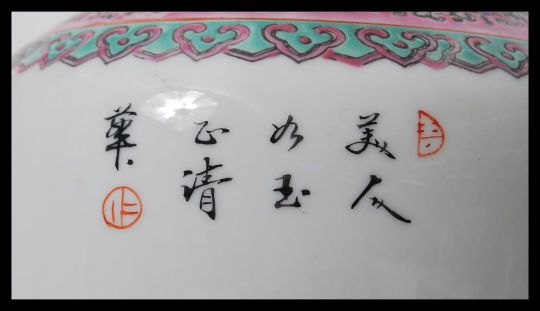 美人
如玉
正清
華